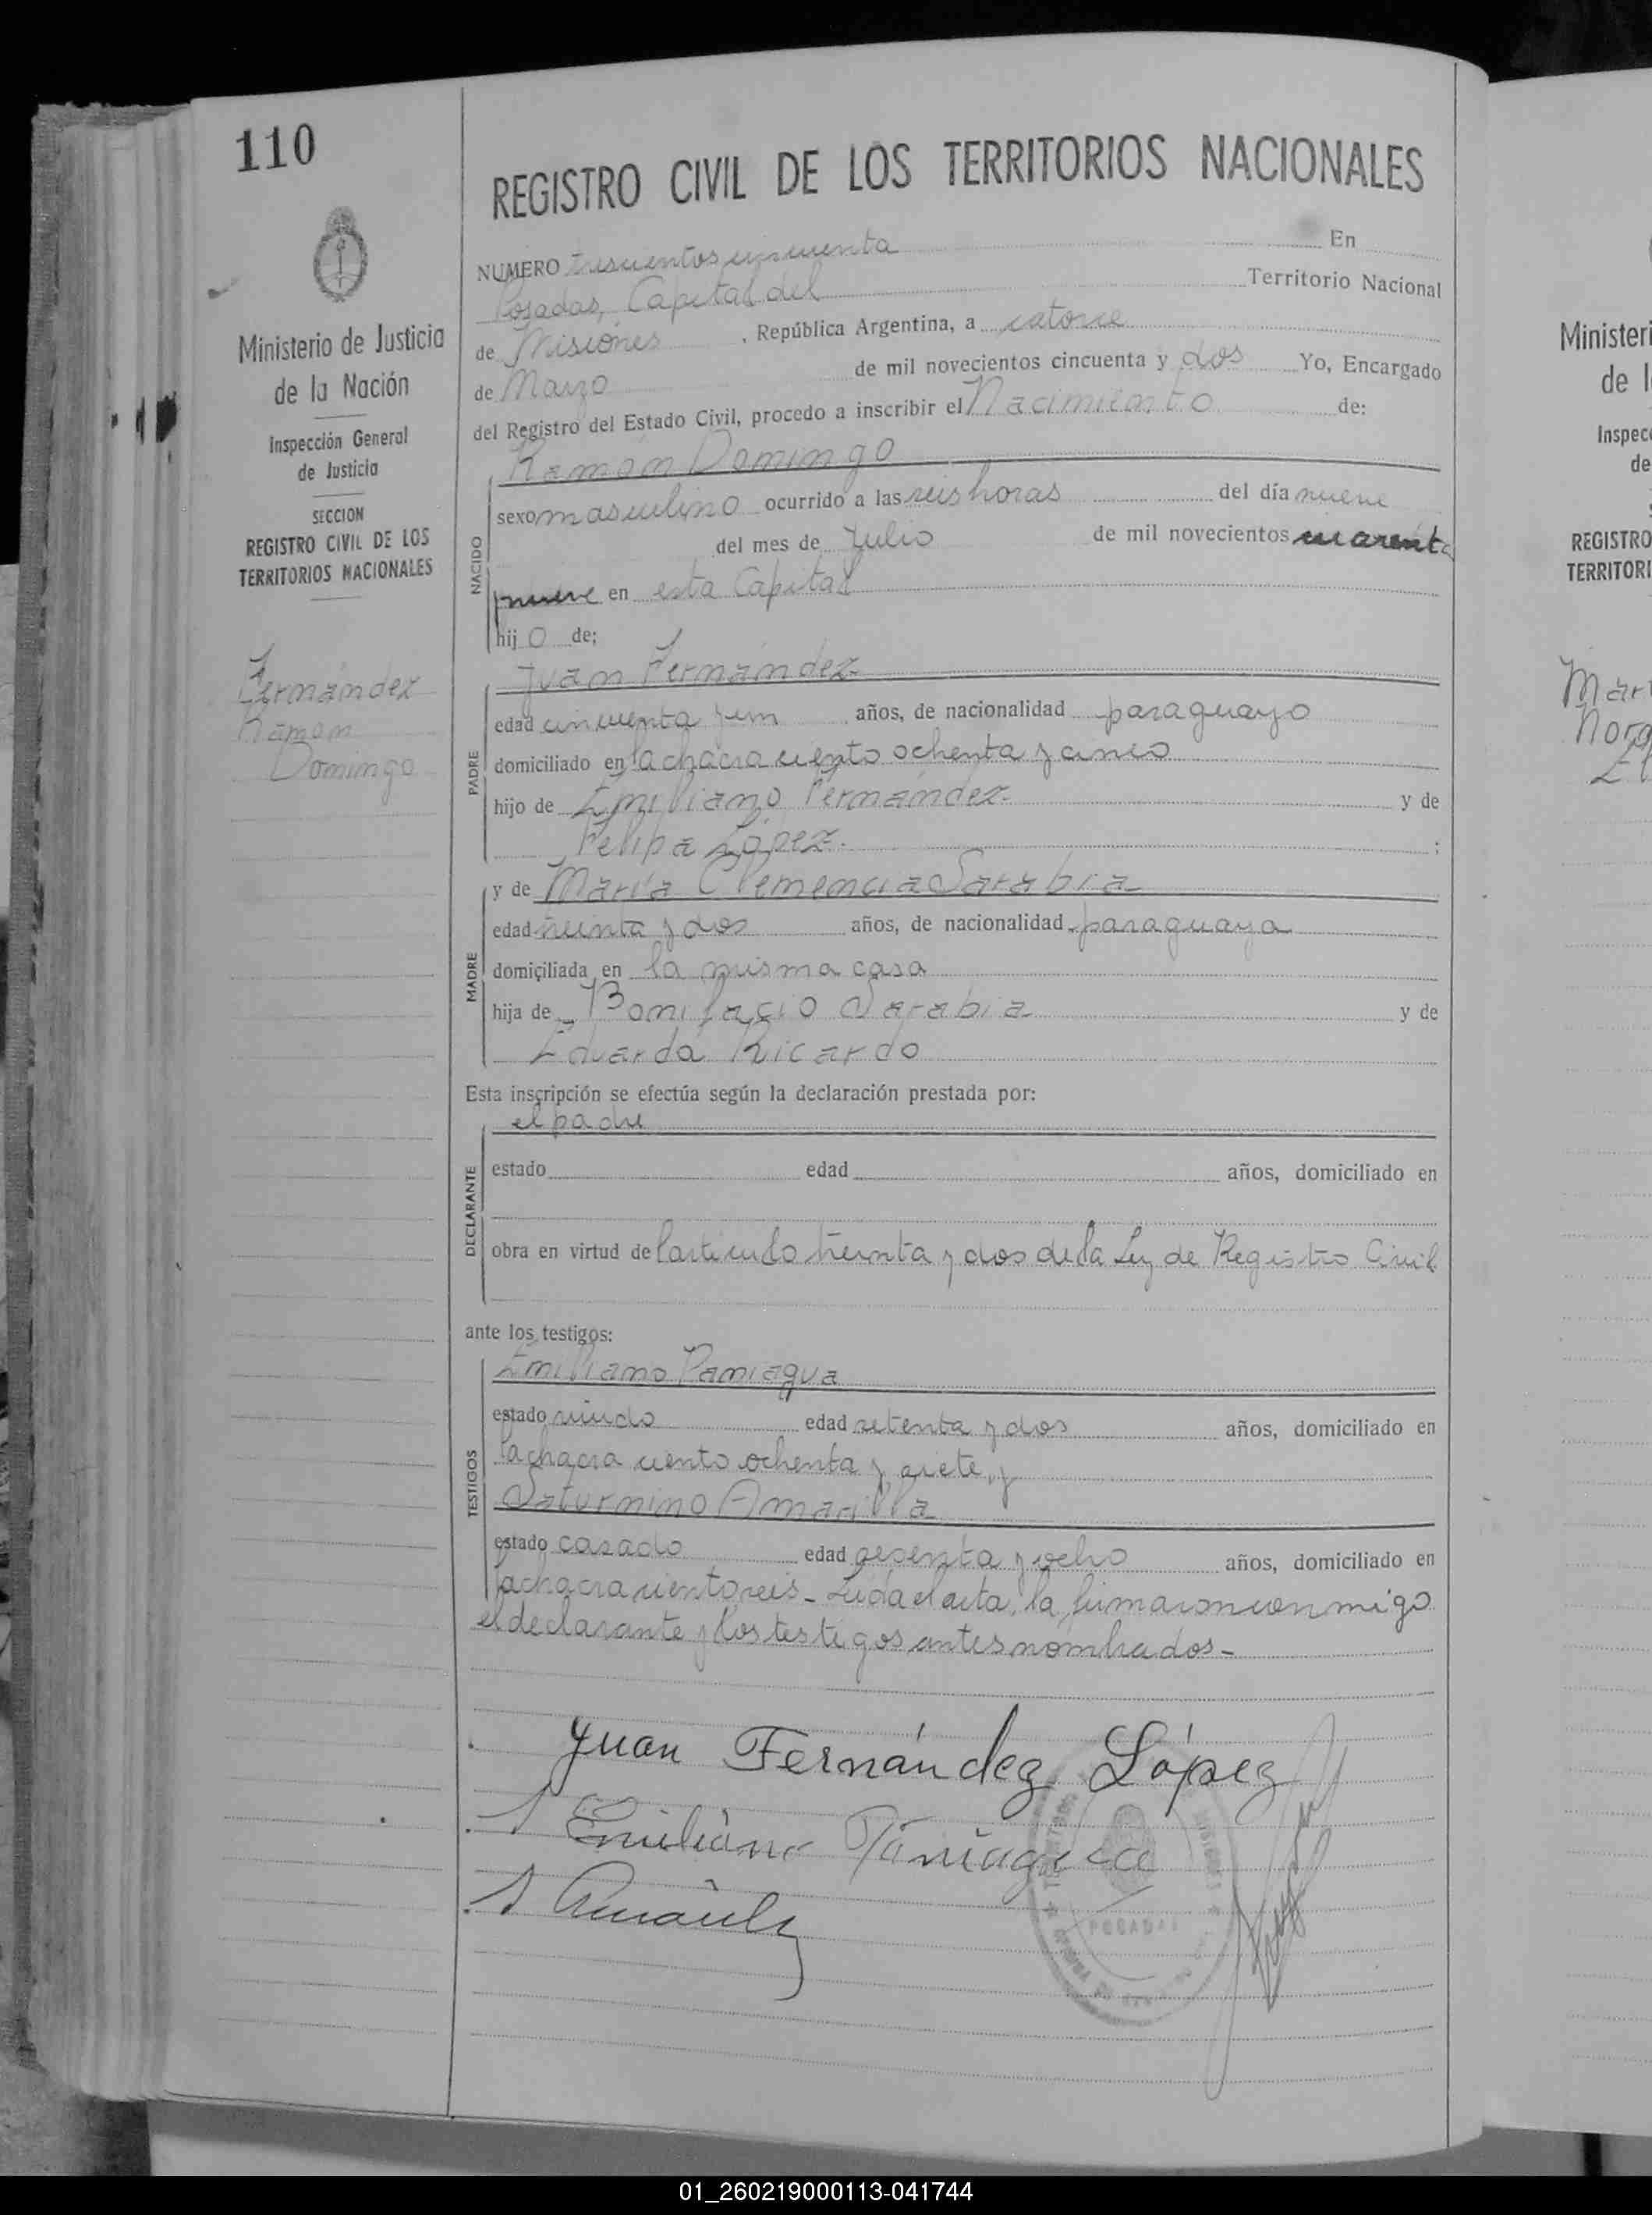 110
REGISTRO CIVIL DE LOS TERRITORIOS NACIONALES
Ministerio de Justicia
de la Nación
Inspección General
de Justicia
SECCION
REGISTRO CIVIL DE LOS
TERRITORIOS NACIONALES
Fernández
Ramón
Domingo
NUMERO trescientos cincuenta En
Posadas, Capital del Territorio Nacional
de Misiones, República Argentina, a catorce
de Marzo de mil novecientos cincuenta y dos Yo, Encargado
del Registro del Estado Civil, procedo a inscribir el Nacimiento de:
Ramón Domingo
NACIDO
sexo masculino ocurrido a las seis horas del día nueve
del mes de Julio de mil novecientos cuarenta
nueve en esta Capital
hijo de;
Juan Fernández
PADRE
edad cincuenta y un años, de nacionalidad paraguayo
domiciliado en la chacra ciento ochenta y cinco
hijo de Emiliano Fernández y de
Felipa López. ;
MADRE
y de María Clemencia Sarabia
edad treinta y dos años, de nacionalidad paraguaya
domiciliada en la misma casa
hija de Bonifacio Sarabia y de
Eduarda Ricardo
Esta inscripción se efectúa según la declaración prestada por:
el padre
DECLARANTE
estado edad años, domiciliado en
obra en virtud del articulo treinta y dos de la Ley de Registro Civil
ante los testigos:
Emiliano Paniagua
TESTIGOS
estado viudo edad setenta y dos años, domiciliado en
la chacra ciento ochenta y siete, y
Saturnino Amarilla
estado casado edad sesenta y ocho años, domiciliado en
la chacra ciento seis - Leída el acta, la firmaron conmigo
el declarante y los testigos antes nombrados -
Juan Fernández López
Emiliano Paniagua
POSADAS
Ministeri
de l
Inspecc
de
REGISTRO
TERRITORI
01_260219000113-041744